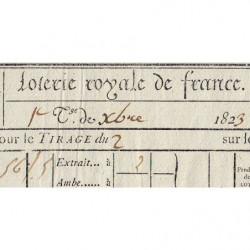 Loterie royale de france.
1er Tge. de Xbre 1823
our le TIRAGE du 2 sur le
Extrait... à 2
Ambe.... à